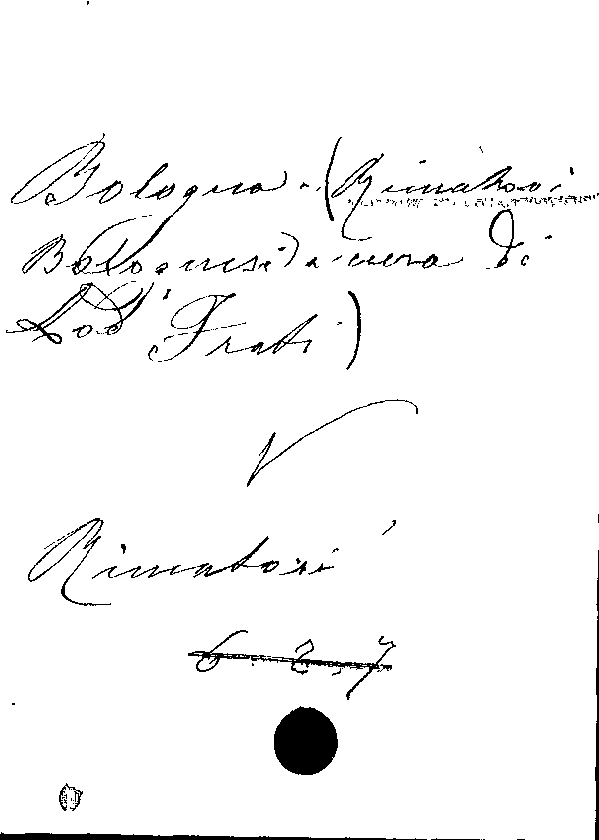 Bologna - (Rimatori
Bolognesi) a cura di
Lod. Frati)
V
Rimatori
6. 2. 7